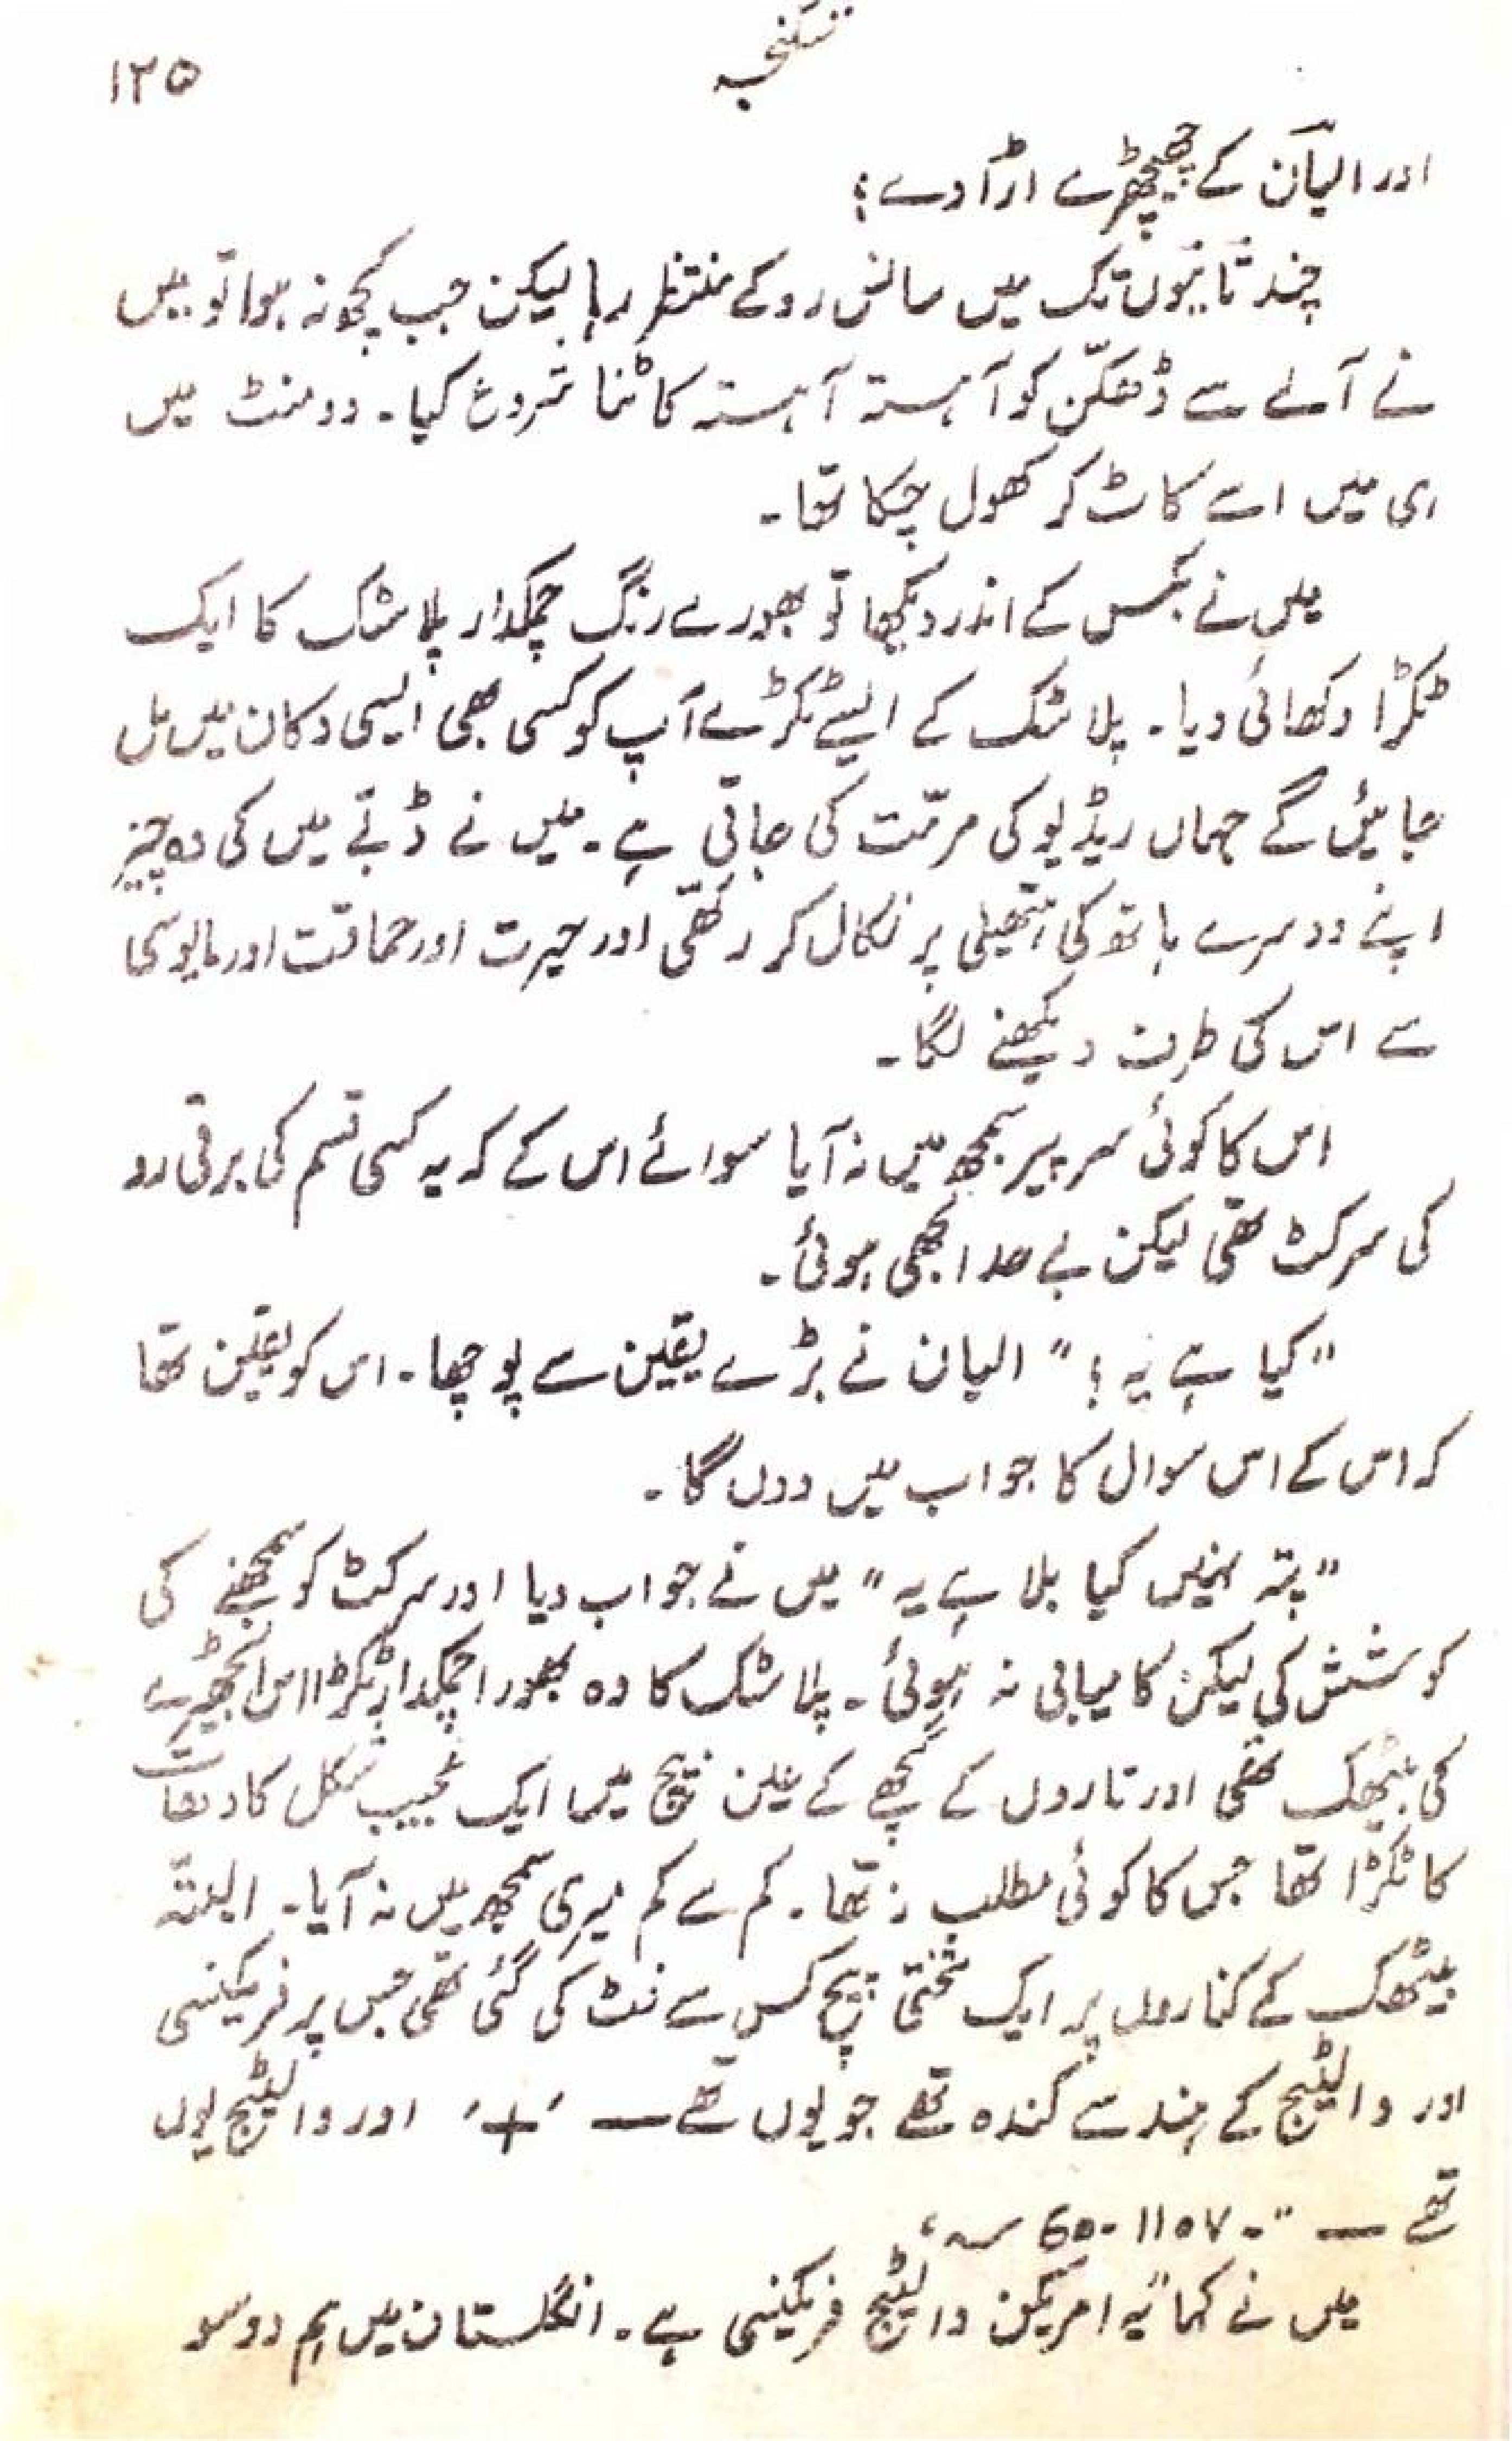 شکنجہ
۱۲۵
اور الیان کے چیتھڑے اڑا دے؛
چند ثانیوں تک میں سانس روکے منتظر رہا لیکن جب کچھ نہ ہوا تو میں
نے آلے سے ڈھکن کو آہستہ آہستہ کاٹنا شروع کیا۔ دو منٹ میں
ہی میں اسے کاٹ کر کھول چکا تھا۔
میں نے بکس کے اندر دیکھا تو بھورے رنگ چمکدار پلاسٹک کا ایک
ٹکڑا دکھائی دیا۔ پلاسٹک کے ایسے ٹکڑے آپ کو کسی بھی ایسی دکان میں مل
جائیں گے جہاں ریڈیو کی مرمّت کی جاتی ہے۔ میں نے ڈبّے میں کی وہ چیز
اپنے دوسرے ہاتھ کی ہتھیلی پر نکال کر رکھّی اور حیرت اور حماقت اور مایوسی
سے اس کی طرف دیکھنے لگا۔
اس کا کوئی سر پیر سمجھ میں نہ آیا سوائے اس کے کہ یہ کسی قسم کی برقی رو
کی سرکٹ تھی لیکن بے حد الجھی ہوئی۔
"کیا ہے یہ؟" الیان نے بڑے یقین سے پوچھا۔ اس کو یقین تھا
کہ اس کے اس سوال کا جواب میں دوں گا۔
"پتہ نہیں کیا بلا ہے یہ" میں نے جواب دیا اور سرکٹ کو سمجھنے کی
کوشش کی لیکن کامیابی نہ ہوئی۔ پلاسٹک کا وہ بھورا چمکدار ٹکڑا اس
کی بیٹھک تھی اور تاروں کے گچھے کے عین بیچ میں ایک عجیب شکل کا دھات
کا ٹکڑا تھا جس کا کوئی مطلب نہ تھا۔ کم سے کم میری سمجھ میں نہ آیا۔ البتہ
بیٹھک کے کناروں پر ایک تختی پیچ کس سے فٹ کی گئی تھی جس پر فریکینسی
اور والٹیج کے ہندسے کندہ تھے جو یوں تھے — '+' اور والٹیج یوں
تھے — "۔ 110V - 60
میں نے کہا "یہ امریکن والٹیج فریکینسی ہے۔ انگلستان میں ہم دو سو